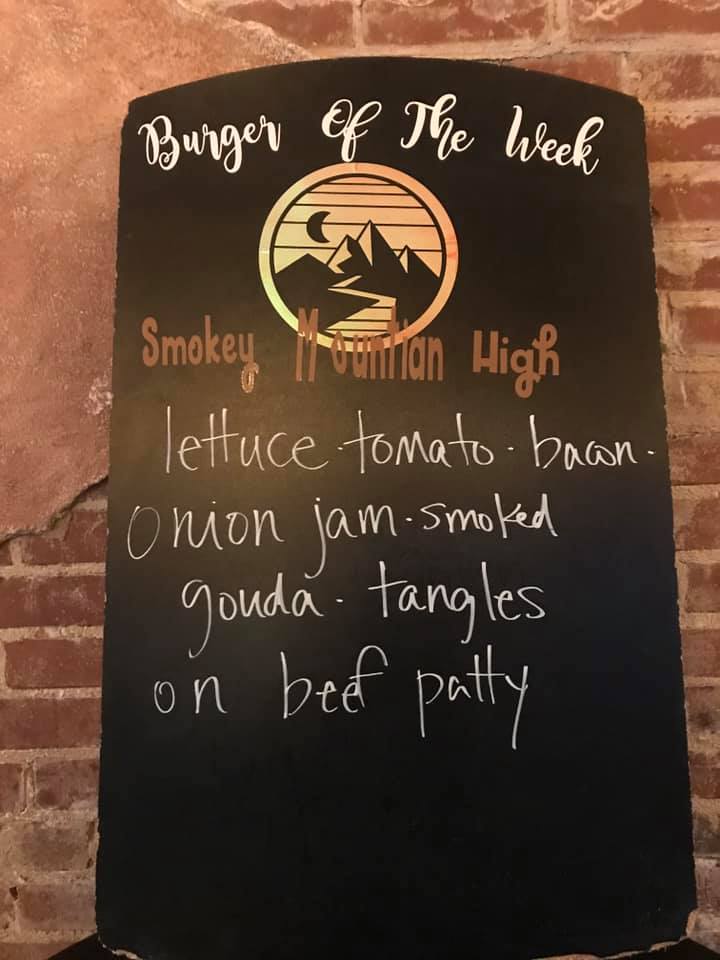 Burger Of The Week
Smokey Mountian High
lettuce · tomato · bacon ·
onion jam · smoked
gouda · tangles
on beef patty